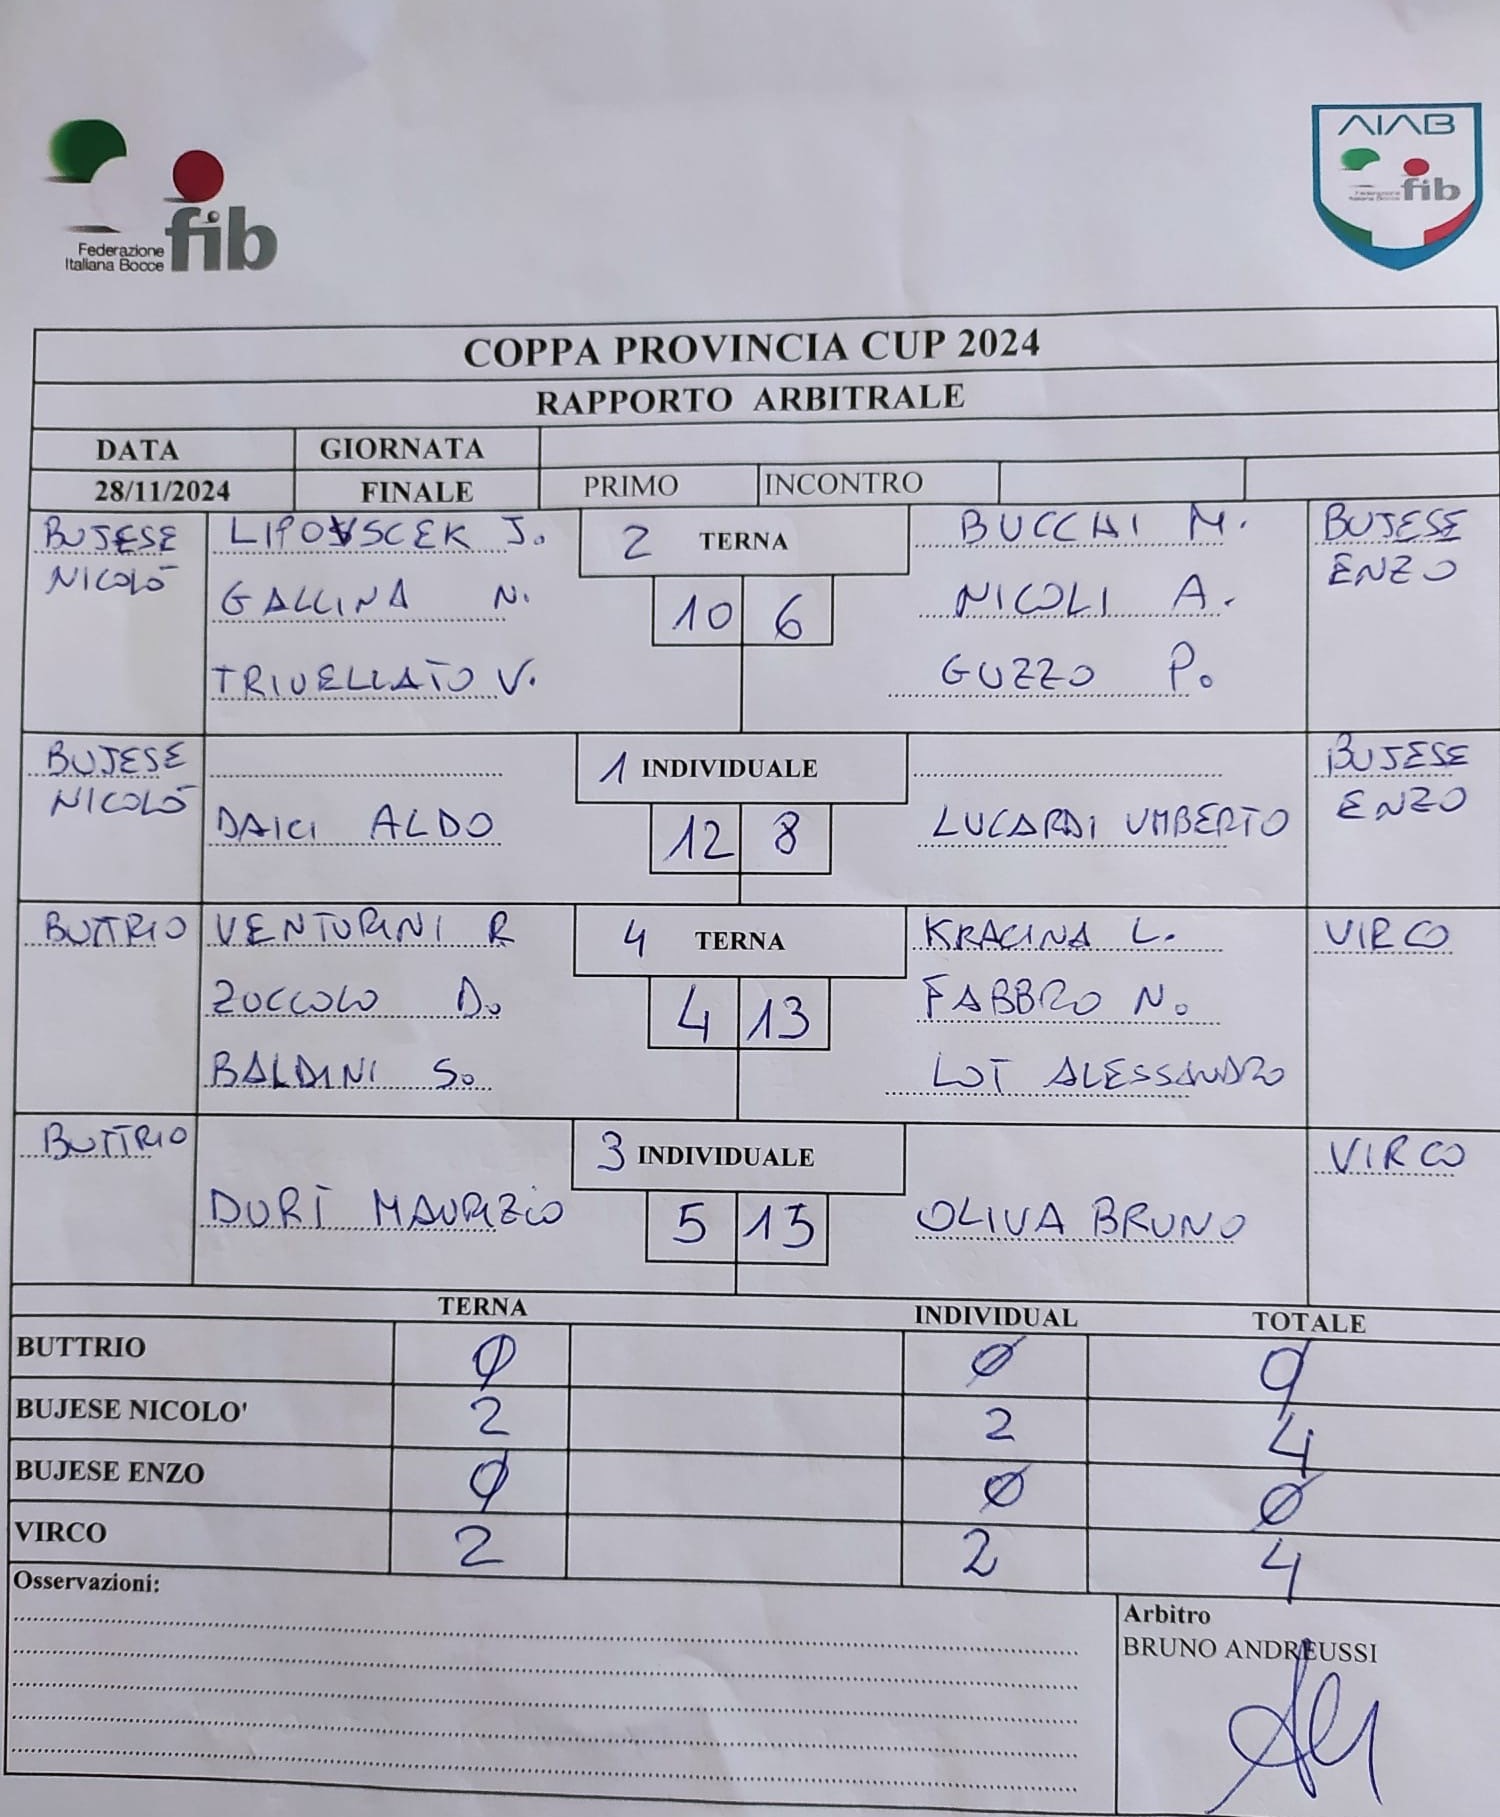 Federazione
Italiana Bocce
fib
AIAB
fib
COPPA PROVINCIA CUP 2024
RAPPORTO ARBITRALE
DATA GIORNATA
28/11/2024 FINALE PRIMO INCONTRO
BUJESE LIPOVSCEK J. 2 TERNA BUCCHI M. BUJESE
NICOLÒ GALLINA N. 10 6 NICOLI A. ENZO
TRIVELLATO V. GUZZO P.
BUJESE 1 INDIVIDUALE BUJESE
NICOLÒ DAICI ALDO 12 8 LUCARDI UMBERTO ENZO
BUTTRIO VENTURINI R 4 TERNA KRACINA L. VIRCO
ZOCCOLO D. 4 13 FABBRO N.
BALDINI S. LOT ALESSANDRO
BUTTRIO 3 INDIVIDUALE VIRCO
DURÌ MAURIZIO 5 13 OLIVA BRUNO
TERNA INDIVIDUAL TOTALE
BUTTRIO 0 0 0
BUJESE NICOLO' 2 2 4
BUJESE ENZO 0 0 0
VIRCO 2 2 4
Osservazioni:
Arbitro
BRUNO ANDREUSSI